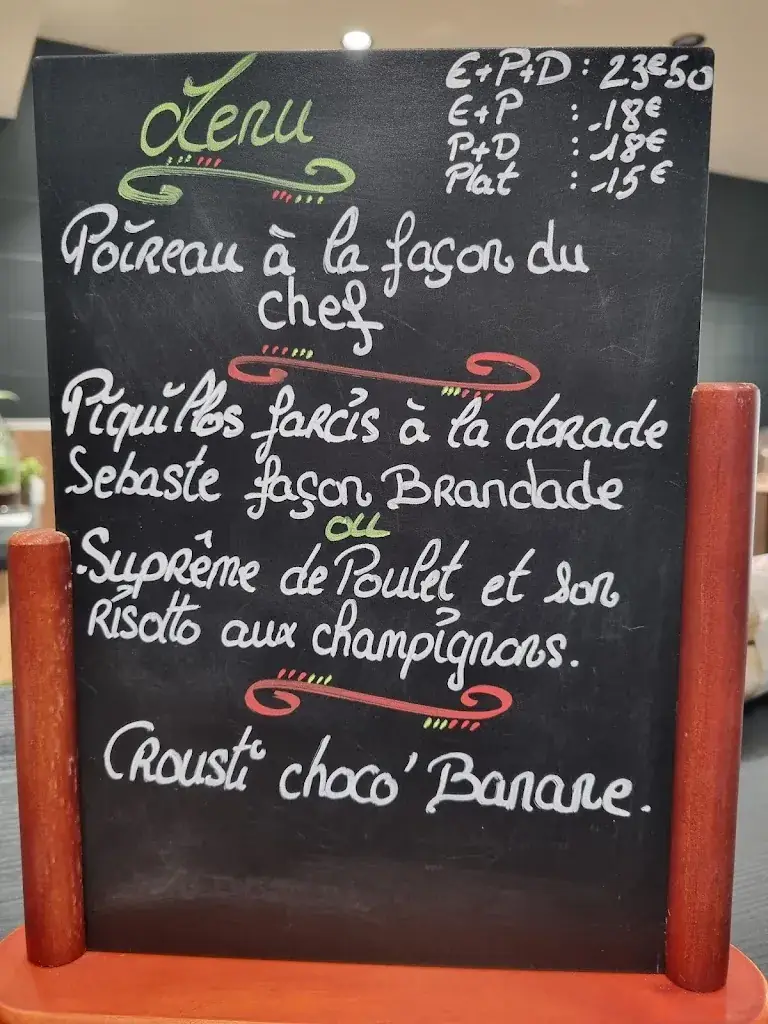 Menu
E+P+D : 23€50
E+P : 18€
P+D : 18€
Plat : 15€
Poireau à la façon du
chef
Piquillos farcis à la dorade
Sebaste façon Brandade
ou
Suprême de Poulet et son
risotto aux champignons.
Crousti choco' Banane.